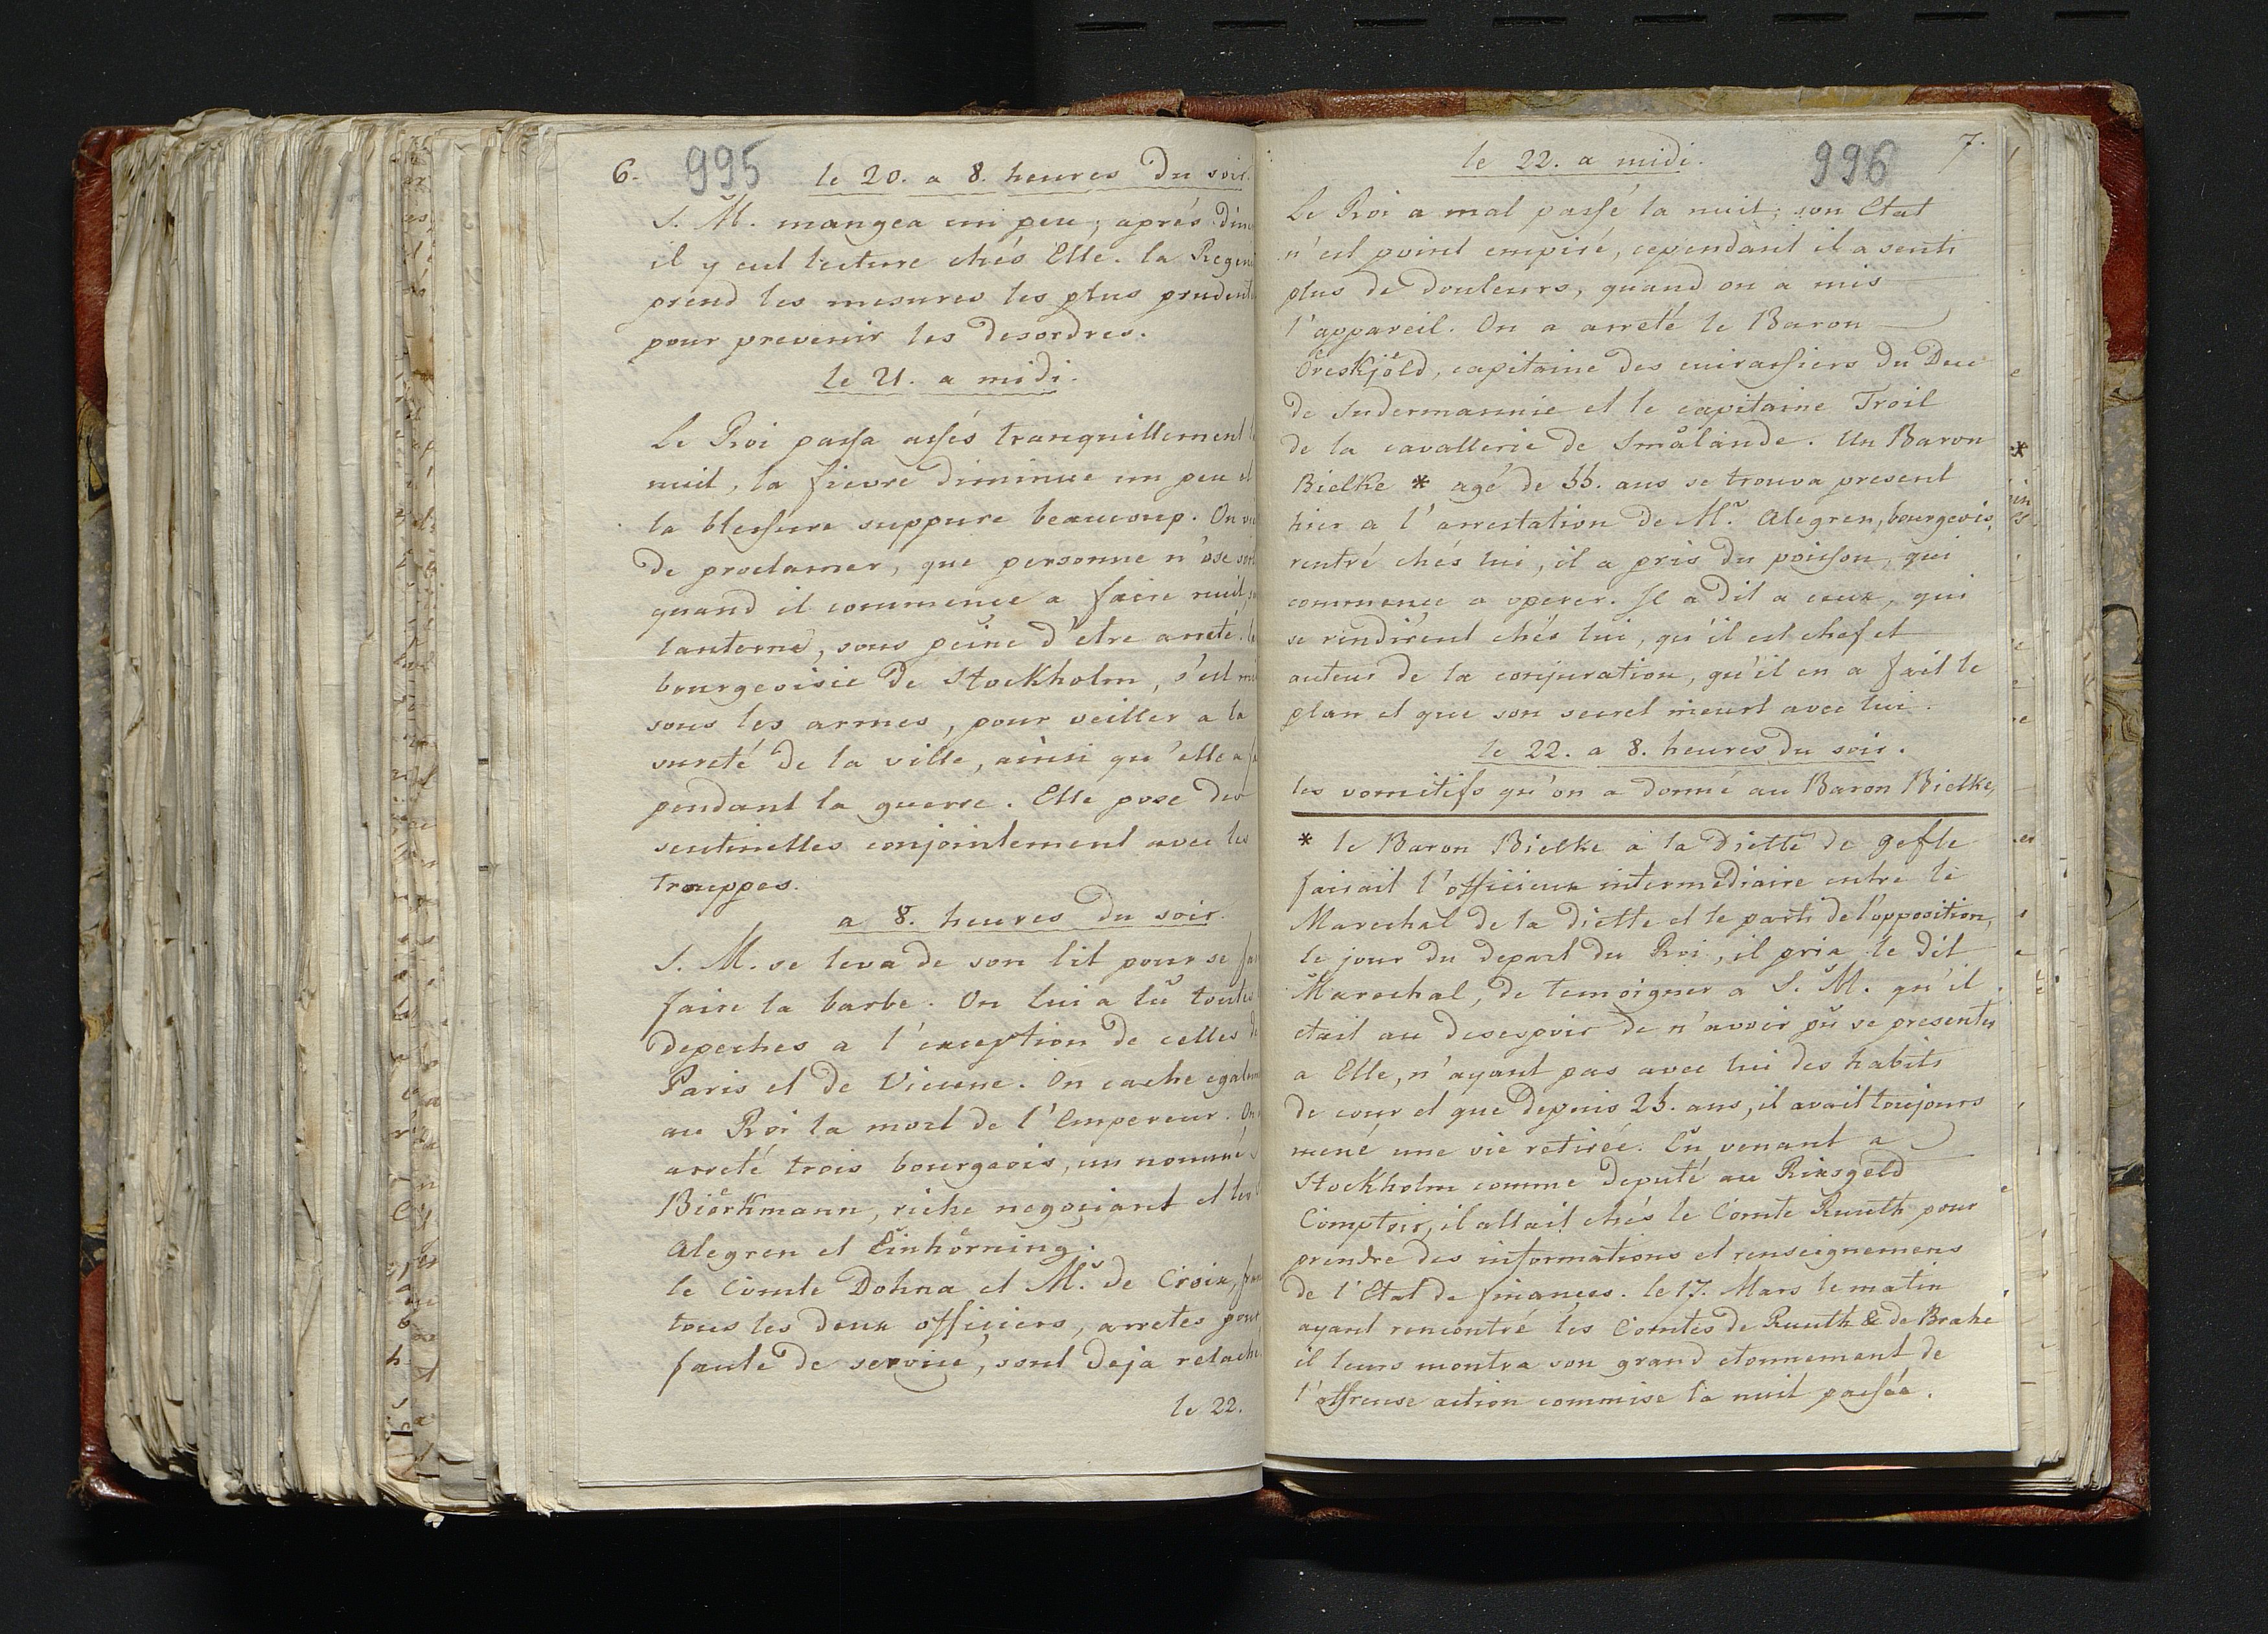 6. 995 le 20. a 8. heures du soir.
S. M. mangea un peu; aprés din
il y eut lecture chés Elle. la Regen
prend les mesures les plus prudent
pour prevenir les desordres.
le 21. a midi.
Le Roi passa assés tranquillement
nuit, la fievre diminue un peu et
la blessure suppure beaucoup. On
de proclamer, que personne n'ose
quand il commence a faire nuit,
lanterne, sous peine d'etre arreté.
bourgeoisie de Stockholm, s'est
sous les armes, pour veiller a la
sureté de la ville, ainsi qu'elle a
pendant la guerre. Elle pose des
sentinelles conjointement avec les
trouppes.
a 8. heures du soir.
S. M. se leva de son lit pour se
faire la barbe. On lui a lû toutes
depeches a l'exception de celles de
Paris et de Vienne. On cache egalem
au Roi la mort de l'Empereur. On
arreté trois bourgeois, un nommé
Biörkmann, riche negoçiant et les
Alegren et Einhörning.
le Comte Dohna et Mr. de Croix,
tous les deux officiers, arretés pour
faute de service, sont deja relaché
le 22.
le 22. a midi. 996 7.
Le Roi a mal passé la nuit; son Etat
n'est point empiré, cependant il a senti
plus de douleurs, quand on a mis
l'appareil. On a arreté le Baron
Öreskjöld, capitaine des cuirassiers du Duc
de Sudermannie et le capitaine Troil
de la cavallerie de Smålande. Un Baron
Bielke * agé de 55. ans se trouva present
hier a l'arrestation de Mr. Alegren, bourgeois,
rentré chés lui, il a pris du poisson, qui
commence a operer. Il a dit a ceux, qui
se rendirent chés lui, qu'il est chef et
auteur de la conjuration, qu'il en a fait le
plan et que son secret meurt avec lui.
le 22. a 8. heures du soir.
les vomitifs qu'on a donné au Baron Bielke,
* le Baron Bielke a la Diette de Gefle
faisait l'officieux intermédiaire entre le
Marechal de la diette et le parti de l'opposition,
le jour du depart du Roi, il pria le dit
Marechal, de temoigner a S. M. qu'il
etait au desespoir de n'avoir pû se presenter
a Elle, n'ayant pas avec lui des habits
de cour et que depuis 25. ans, il avait toujours
mené une vie retirée. En venant a
Stockholm comme deputé au Rixsgeld
Comptoir, il allait chés le Comte Ruuth pour
prendre des informations et renseignemens
de l'Etat de finances. le 17. Mars le matin
ayant rencontré les Comtes de Ruuth & de Brahe
il leurs montra son grand etonnement de
l'affreuse action commise la nuit passée.